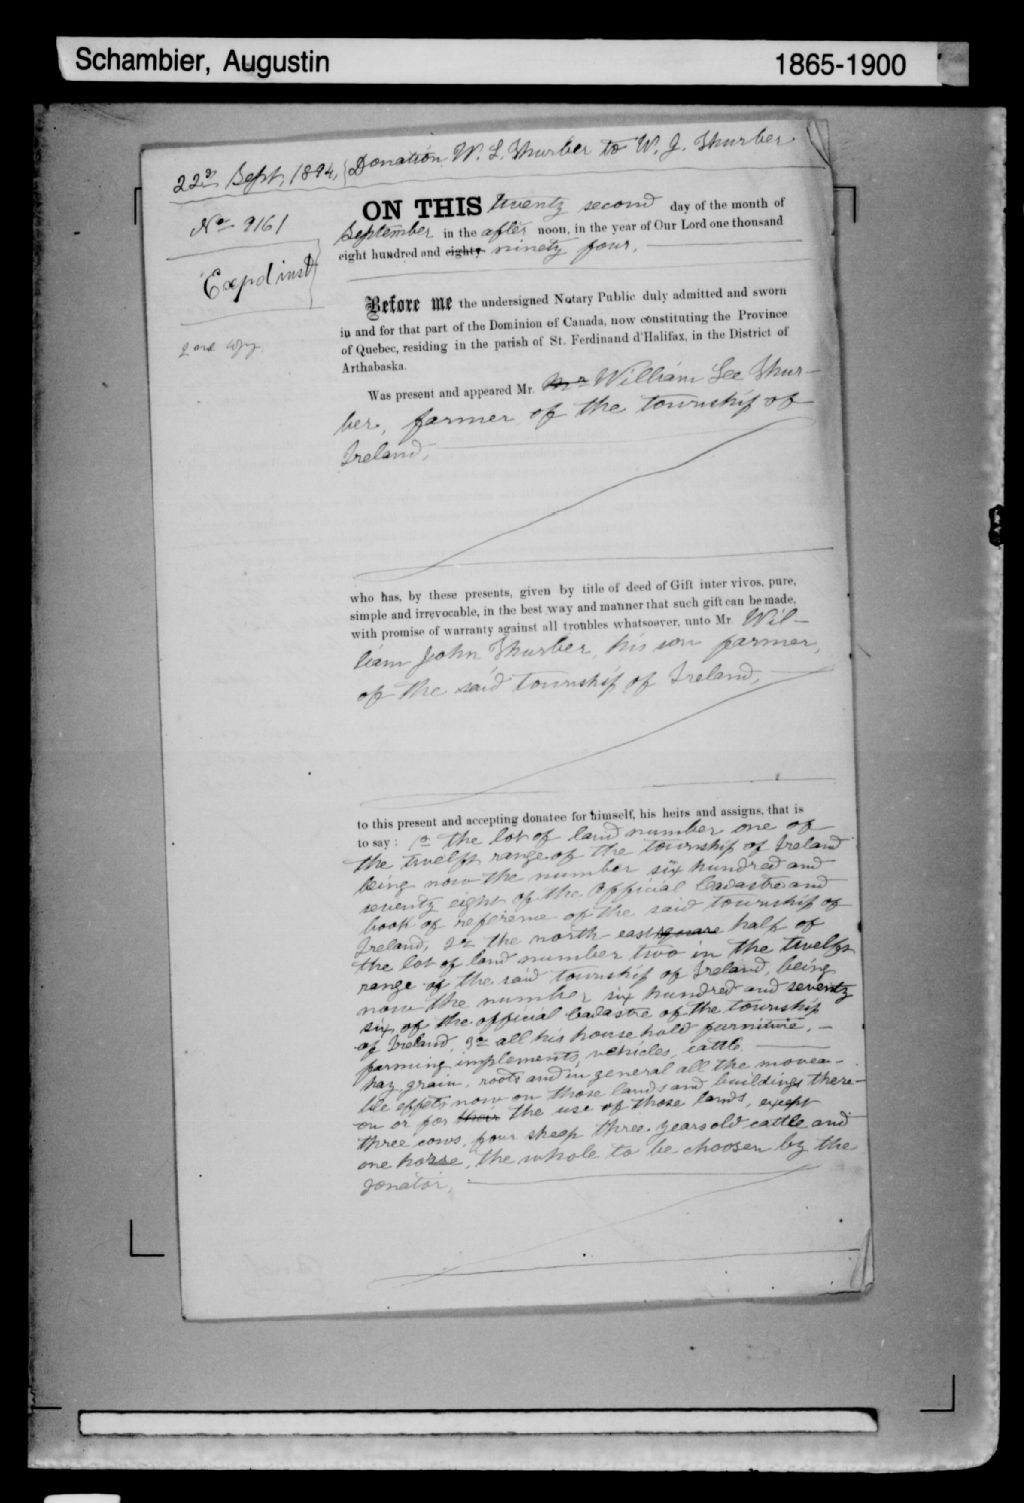 Schambier, Augustin 1865-1900
22d Sept. 1894, Donation W. L. Thurber to W. J. Thurber
No 9161
Expd inst
2nd copy
ON THIS twenty second day of the month of
September in the after noon, in the year of Our Lord one thousand
eight hundred and eighty ninety four,
Before me the undersigned Notary Public duly admitted and sworn
in and for that part of the Dominion of Canada, now constituting the Province
of Quebec, residing in the parish of St. Ferdinand d'Halifax, in the District of
Arthabaska.
Was present and appeared Mr. Mr William Lee Thur-
ber, farmer of the township of
Ireland,
who has, by these presents, given by title of deed of Gift inter vivos, pure,
simple and irrevocable, in the best way and manner that such gift can be made,
with promise of warranty against all troubles whatsoever, unto Mr Wil-
liam John Thurber, his son farmer,
of the said township of Ireland,
to this present and accepting donatee for himself, his heirs and assigns, that is
to say : 1o the lot of land number one of
the twelft range of the township of Ireland
being now the number six hundred and
seventy eight of the official Cadastre and
book of refereme of the said township of
Ireland, 2o the north east square half of
the lot of land number two in the twelft
range of the said township of Ireland, being
now the number six hundred and seventy
six of the official Cadastre of the township
of Ireland, 3o all his house hold furniture,
farming implements, vehicles, cattle
hay grain, roots and in general all the movea-
ble effets now on those lands and buildings there-
on or for their the use of those lands, except
three cows, four sheep three years old cattle and
one horse, the whole to be choosen by the
donator,